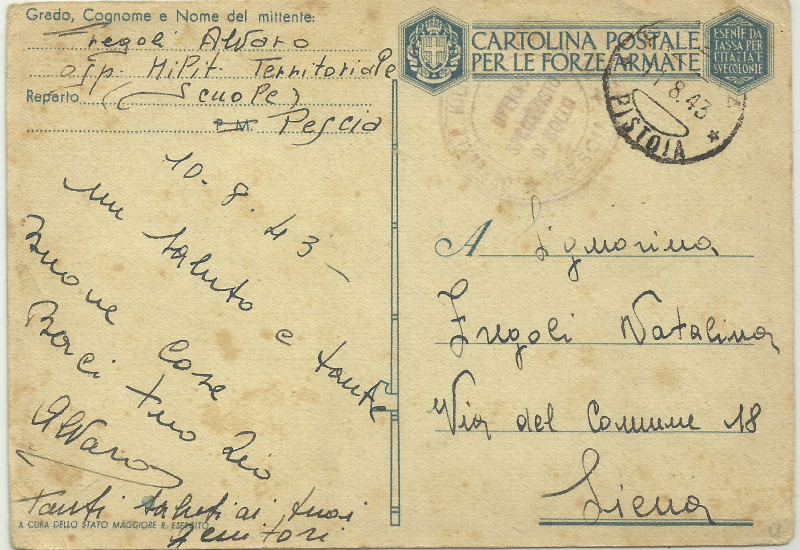 Grado, Cognome e Nome del mittente:
Fregoli Alvaro
osp. Milit. Territoriale
Reparto (Scuole)
P. M. Pescia
10-8.43-
un saluto e tante
Buone Cose
Baci tuo Zio
Alvaro
Tanti saluti ai tuoi
Genitori
A CURA DELLO STATO MAGGIORE R. ESERCITO
CARTOLINA POSTALE
PER LE FORZE ARMATE
ESENTE DA
TASSA PER
L'ITALIA E
SUE COLONIE
8.43
PISTOIA *
PESCIA
A Signorina
Fregoli Natalina
Via del Comune 18
Siena